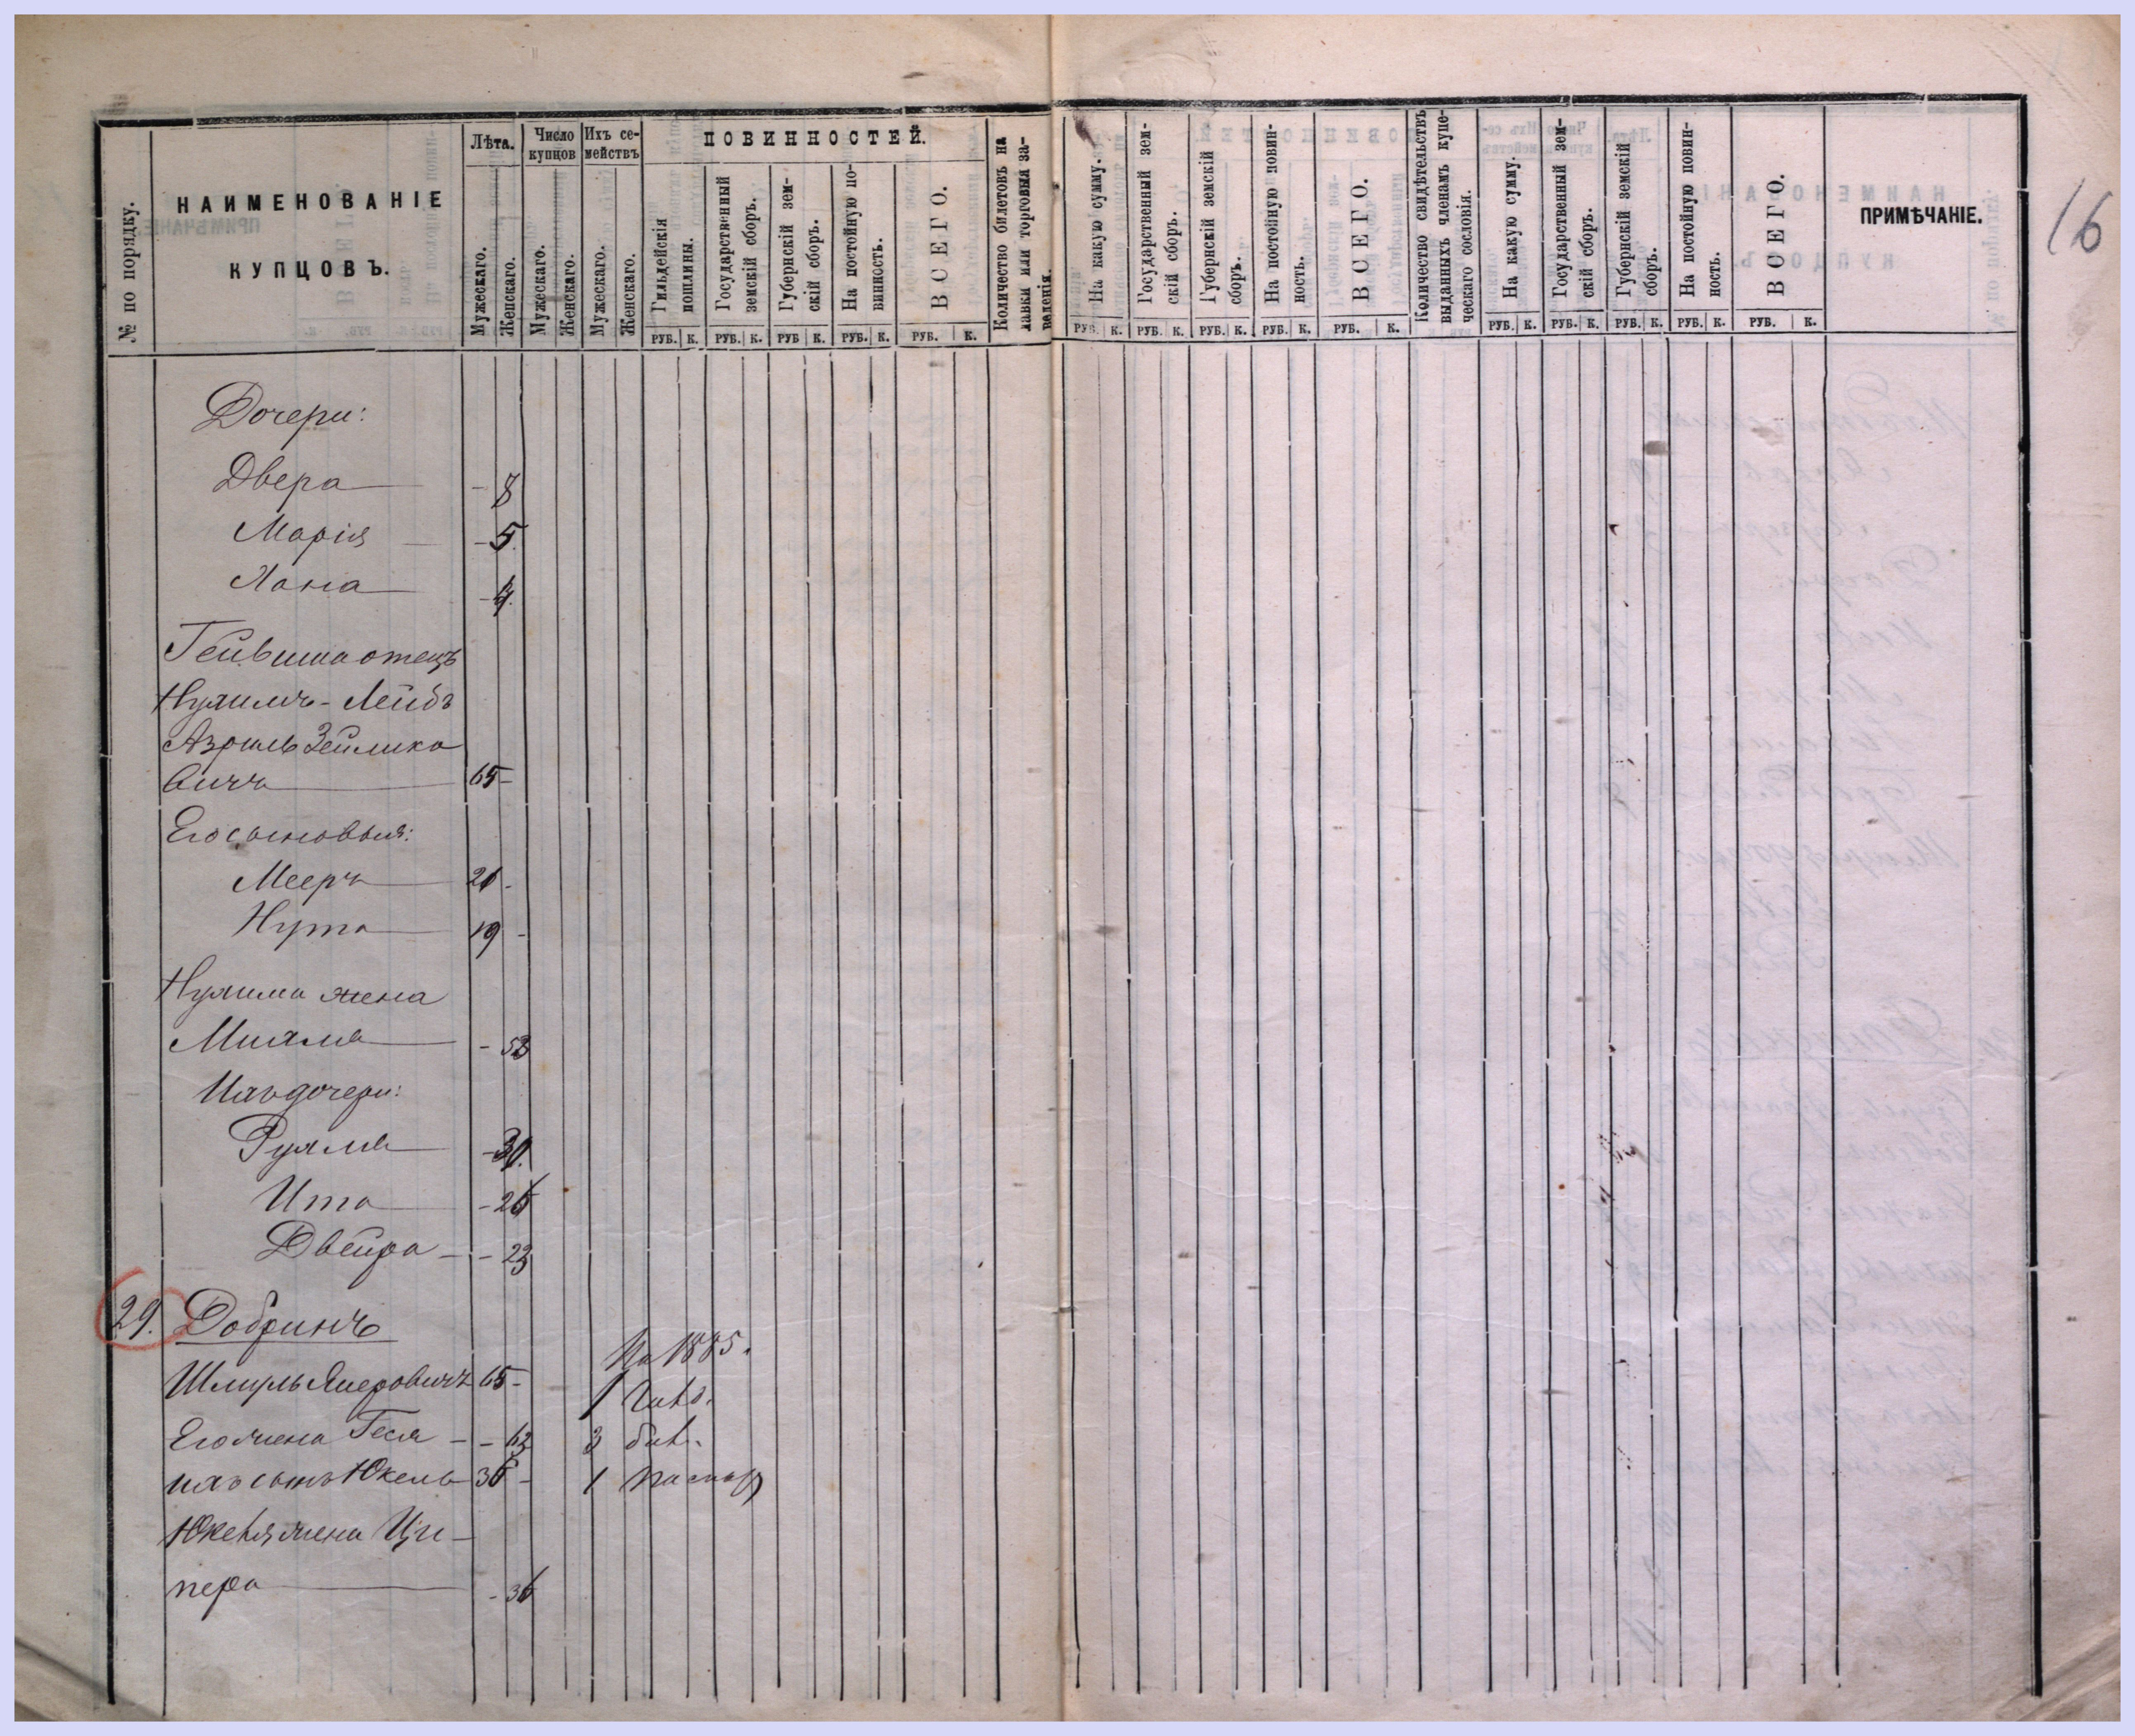 16
№ по порядку.
НАИМЕНОВАНІЕ
КУПЦОВЪ.
Лѣта.
Мужескаго.
Женскаго.
Число купцовъ
Мужескаго.
Женскаго.
Ихъ се-
мействъ
Мужескаго.
Женскаго.
ПОВИННОСТЕЙ.
Гильдейскія
пошлины.
Государственный
земскій сборъ.
Губернскій зем-
скій сборъ.
На постойную по-
винность.
ВСЕГО.
Количество билетовъ на
лавки или торговыя за-
веденія.
На какую сумму.
Государственный зем-
скій сборъ.
Губернскій земскій
сборъ.
На постойную повин-
ность.
ВСЕГО.
Количество свидѣтельствъ
выданныхъ членамъ купе-
ческаго сословія.
На какую сумму.
Государственный зем-
скій сборъ.
Губернскій земскій
сборъ.
На постойную повин-
ность.
ВСЕГО.
ПРИМѢЧАНІЕ.
РУБ. К. РУБ. К. РУБ К. РУБ. К. РУБ. К. РУБ. К. РУБ. К. РУБ. К. РУБ. К. РУБ. К. РУБ. К. РУБ. К. РУБ. К. РУБ. К. РУБ. К.
Дочери:
Двера - 8
Марія - 5.
Хана
отецъ
Нухимъ-Лейбъ
Азриль Зелико
вичъ 65 -
Его сыновья:
Мееръ
Нута 19 -
Нухима жена
Михля
Ихъ дочери:
Рухля
Ита
Двейра - 23
29. Добринъ
На 1885.
Шмуль 65 -
1
Его жена Геся -
3 бил.
ихъ сынъ Юкель
1 паспор
Юкеля жена Ци-
пера